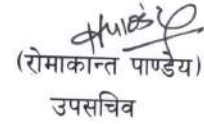 (रोमाकान्त पाण्डेय)
उपसचिव